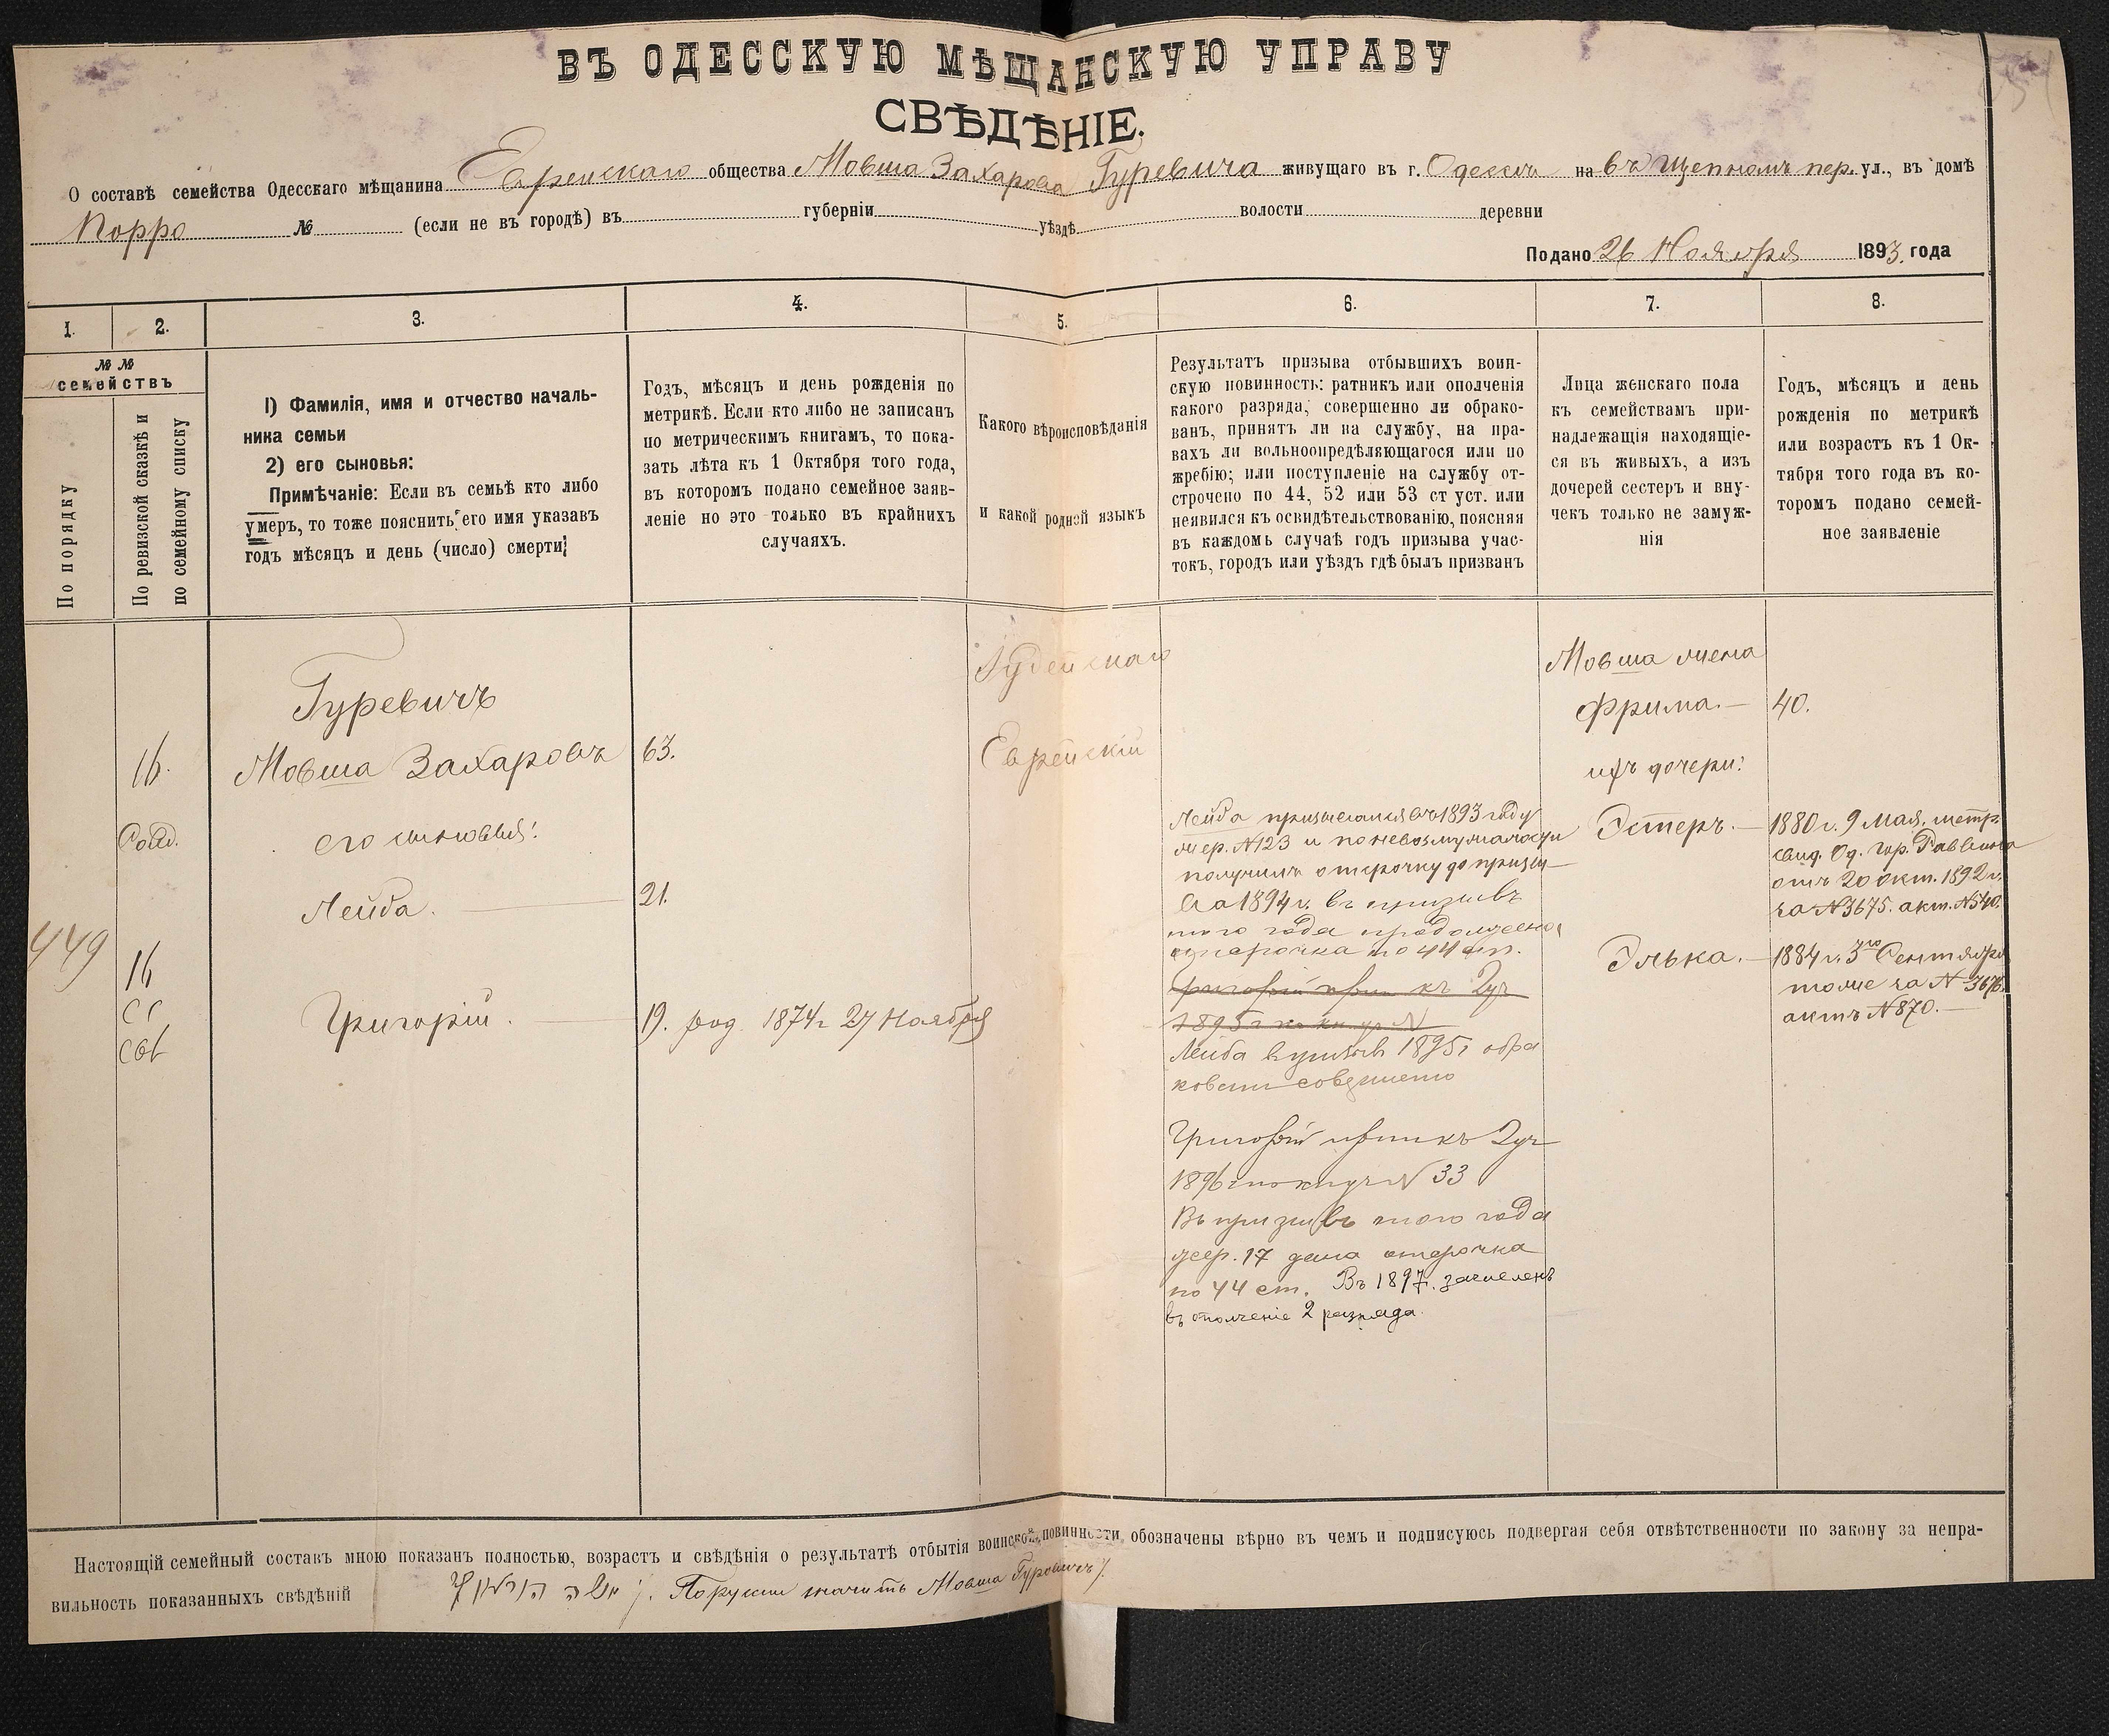 ВЪ ОДЕССКУЮ МѢЩАНСКУЮ УПРАВУ
СВѢДѢНІЕ.
О составѣ семейства Одесскаго мѣщанина Еврейскаго общества Мовша Захарова Гуревича живущаго въ г. Одессѣ на въ Щепномъ пер. ул., въ домѣ
Корро № (если не въ городѣ) въ губерніи уѣздѣ волости деревни
Подано 26 Ноября 1893. года
1. 2. 3. 4. 5. 6. 7. 8.
№ №
семействъ
По порядку
По ревизской сказкѣ и
по семейному списку
1) Фамилія, имя и отчество началь-
ника семьи
2) его сыновья:
Примѣчаніе: Если въ семьѣ кто либо
умеръ, то тоже пояснить его имя указавъ
годъ мѣсяцъ и день (число) смерти;
Годъ, мѣсяцъ и день рожденія по
метрикѣ. Если кто либо не записанъ
по метрическимъ книгамъ, то пока-
зать лѣта къ 1 Октября того года,
въ которомъ подано семейное заяв-
леніе но это только въ крайнихъ
случаяхъ.
Какого вѣроисповѣданія
и какой родной языкъ
Результатъ призыва отбывшихъ воин-
скую повинность: ратникъ или ополченія
какого разряда, совершенно ли обрако-
ванъ, принятъ ли на службу, на пра-
вахъ ли вольноопредѣляющагося или по
жребію; или поступленіе на службу от-
строчено по 44, 52 или 53 ст уст. или
неявился къ освидѣтельствованію, поясняя
въ каждомъ случаѣ годъ призыва учас-
токъ, городъ или уѣздъ гдѣ былъ призванъ
Лица женскаго пола
къ семействамъ при-
надлежащія находящіе-
ся въ живыхъ, а изъ
дочерей сестеръ и вну-
чекъ только не замуж-
нія
Годъ, мѣсяцъ и день
рожденія по метрикѣ
или возрастъ къ 1 Ок-
тября того года въ ко-
торомъ подано семей-
ное заявленіе
449
16.
16
Гуревичъ
Мовша Захаровъ 63.
его сыновья:
Лейба. 21.
Григорій. 19. род. 1874 г 27 Ноября
Іудейскаго
Еврейскій
Лейба призывался въ 1893 году
жер. №123 и по невозмужалости
получилъ отсрочку до призы-
ва 1894 г. въ призывъ
того года продолжена
отсрочка по 44 ст.
Григорій прип къ 2 уч
1895 г №
Лейба въ призывъ 1895 г обра
кованъ совершенно
Григорій припи къ 2 уч
1896 г по кн уч № 33
Въ призывъ того года
жер. 17 дана отсрочка
по 44 ст. Въ 1897. зачисленъ
въ ополченіе 2 разряда.
Мовша жена
Фрима. — 40.
ихъ дочери:
Эстеръ. — 1880 г. 9 Мая, метр.
свид. Од. гор. Раввина
отъ 20 окт. 1892 г.
за №3675. акт. №540.
Элька. — 1884 г. 3го Сентября
тоже за № 3676.
актъ №870. —
Настоящій семейный составъ мною показанъ полностью, возрастъ и свѣдѣнія о результатѣ отбытія воинской повинности, обозначены вѣрно въ чемъ и подписуюсь подвергая себя отвѣтственности по закону за непра-
вильность показанныхъ свѣдѣній
משה הורוויץ /. По русски значитъ Мовша Гуровичъ /.